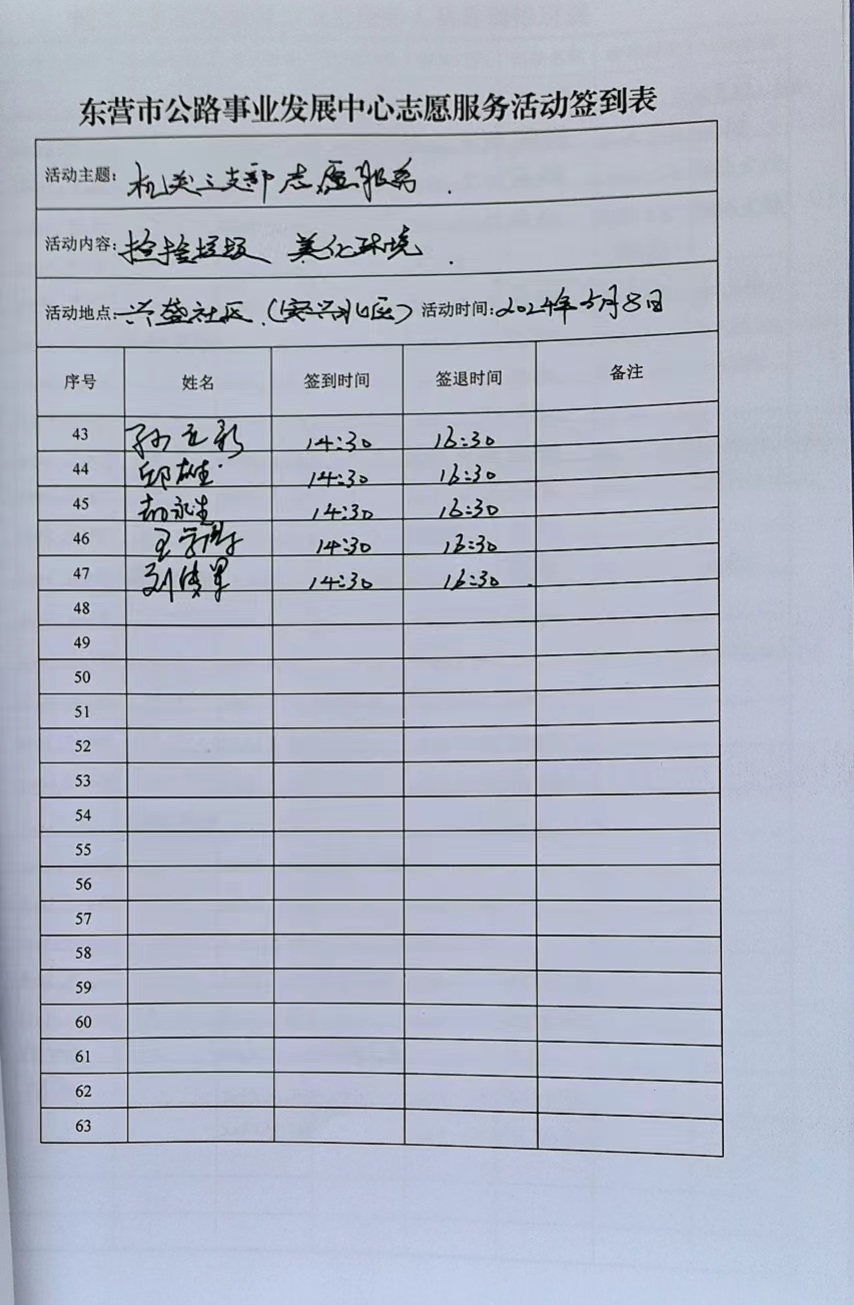 东营市公路事业发展中心志愿服务活动签到表
活动主题:机关三支部志愿服务.
活动内容:捡拾垃圾 美化环境.
活动地点:兴盛社区.(安兴北区) 活动时间:2024年5月8日
序号 姓名 签到时间 签退时间 备注
43 孙 14:30 16:30
44 邱雄 14:30 16:30
45 永生 14:30 16:30
46 王学 14:30 16:30
47 刘 军 14:30 16:30
48
49
50
51
52
53
54
55
56
57
58
59
60
61
62
63